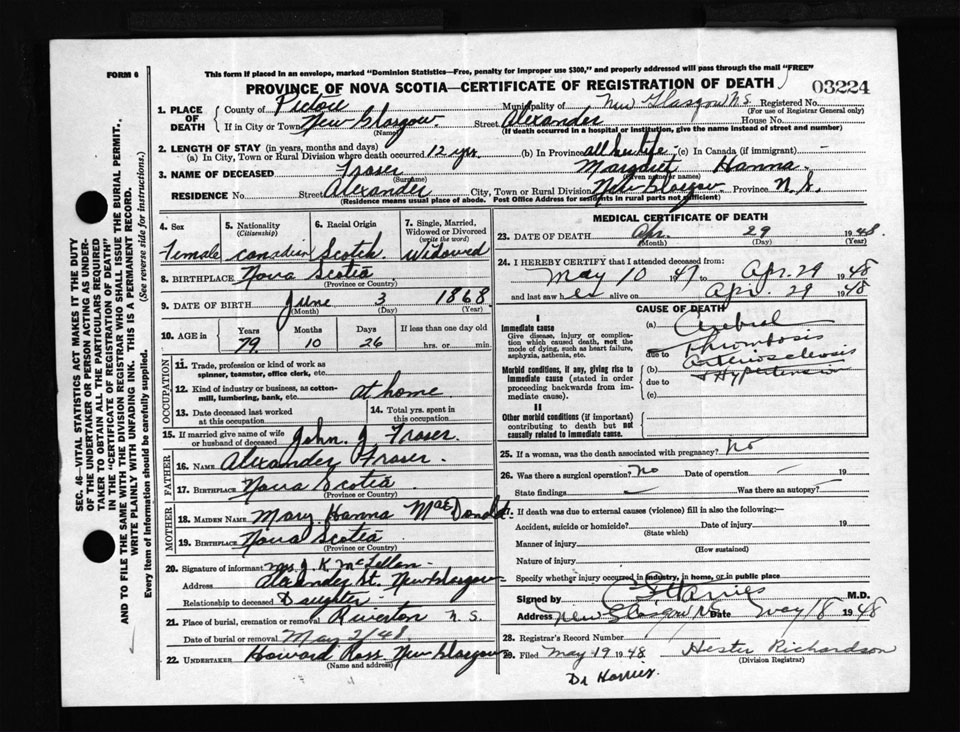 FORM 6
This form if placed in an envelope, marked "Dominion Statistics—Free, penalty for improper use $300," and properly addressed will pass through the mail "FREE"
PROVINCE OF NOVA SCOTIA—CERTIFICATE OF REGISTRATION OF DEATH
03224
1. PLACE OF DEATH
County of Pictou Municipality of New Glasgow N.S. Registered No.
(For use of Registrar General only)
If in City or Town New Glasgow. Street Alexander House No.
(Name) (If death occurred in a hospital or institution, give the name instead of street and number)
2. LENGTH OF STAY (in years, months and days)
(a) In City, Town or Rural Division where death occurred 12 yrs. (b) In Province all her life (c) In Canada (if immigrant)
3. NAME OF DECEASED Fraser Margaret Hanna
(Surname) (Given name or names)
RESIDENCE No. Street Alexander City, Town or Rural Division New Glasgow Province N.S.
(Residence means usual place of abode. Post Office Address for residents in rural parts not sufficient)
4. Sex Female
5. Nationality (Citizenship) Canadian
6. Racial Origin Scotch
7. Single, Married, Widowed or Divorced (write the word) Widowed
8. BIRTHPLACE Nova Scotia
(Province or Country)
9. DATE OF BIRTH June 3 1868
(Month) (Day) (Year)
10. AGE in Years Months Days If less than one day old
79 10 26 hrs. or min.
OCCUPATION
11. Trade, profession or kind of work as spinner, teamster, office clerk, etc.
12. Kind of industry or business, as cotton-mill, lumbering, bank, etc. At home
13. Date deceased last worked at this occupation
14. Total yrs. spent in this occupation
15. If married give name of wife or husband of deceased John J Fraser.
FATHER
16. NAME Alexander Fraser.
17. BIRTHPLACE Nova Scotia
(Province or Country)
MOTHER
18. MAIDEN NAME Mary Hanna MacDonald.
19. BIRTHPLACE Nova Scotia
(Province or Country)
20. Signature of informant Mrs J. K. McLellan
Address Alexander St. New Glasgow
Relationship to deceased Daughter
21. Place of burial, cremation or removal Riverton N.S.
Date of burial or removal May 2/48.
22. UNDERTAKER Howard Ross. New Glasgow
(Name and address)
MEDICAL CERTIFICATE OF DEATH
23. DATE OF DEATH Apr. 29 1948.
(Month) (Day) (Year)
24. I HEREBY CERTIFY that I attended deceased from:
May 10 47 to Apr. 29 1948
and last saw er alive on Apr. 29 1948
CAUSE OF DEATH
I
Immediate cause
Give disease, injury or complication which caused death, not the mode of dying, such as heart failure, asphyxia, asthenia, etc.
(a) Cerebral
due to Thrombosis
Morbid conditions, if any, giving rise to immediate cause (stated in order proceeding backwards from immediate cause).
(b) Arteriosclerosis
due to & Hypertension
(c)
II
Other morbid conditions (if important) contributing to death but not causally related to immediate cause.
25. If a woman, was the death associated with pregnancy? No
26. Was there a surgical operation? No Date of operation — 19
State findings — Was there an autopsy?
27. If death was due to external causes (violence) fill in also the following:—
Accident, suicide or homicide? Date of injury 19
(State which)
Manner of injury
(How sustained)
Nature of injury
Specify whether injury occurred in industry, in home, or in public place
Signed by Harries M.D.
Address New Glasgow NS Date May 18 1948
28. Registrar's Record Number
29. Filed May 19 1948 Hester Richardson
(Division Registrar)
Dr Harries.
SEC. 46—VITAL STATISTICS ACT MAKES IT THE DUTY
OF THE UNDERTAKER OR PERSON ACTING AS UNDER-
TAKER TO OBTAIN ALL THE PARTICULARS REQUIRED
IN THE "CERTIFICATE OF REGISTRATION OF DEATH"
AND TO FILE THE SAME WITH THE DIVISION REGISTRAR WHO SHALL ISSUE THE BURIAL PERMIT.
WRITE PLAINLY WITH UNFADING INK. THIS IS A PERMANENT RECORD.
Every item of information should be carefully supplied. (See reverse side for instructions.)